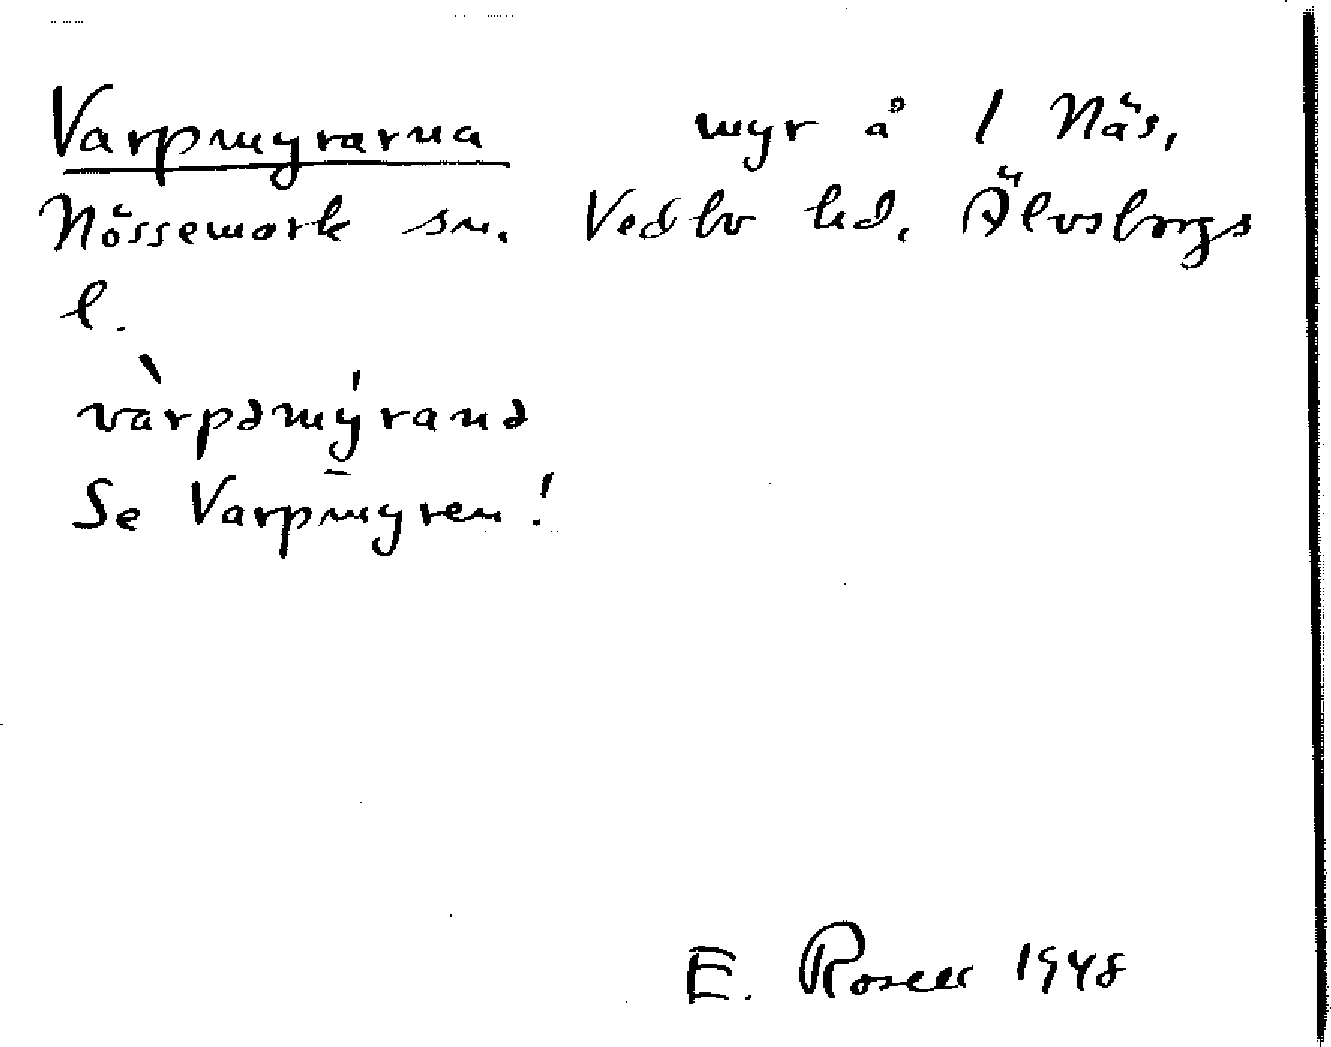 Varpmyrarna myr å 1 Näs,
Nössemark sn. Vedbo hd. Älvsborgs
l.
vàrpəmýranə
Se Varpmyren!
E. Rosell 1948